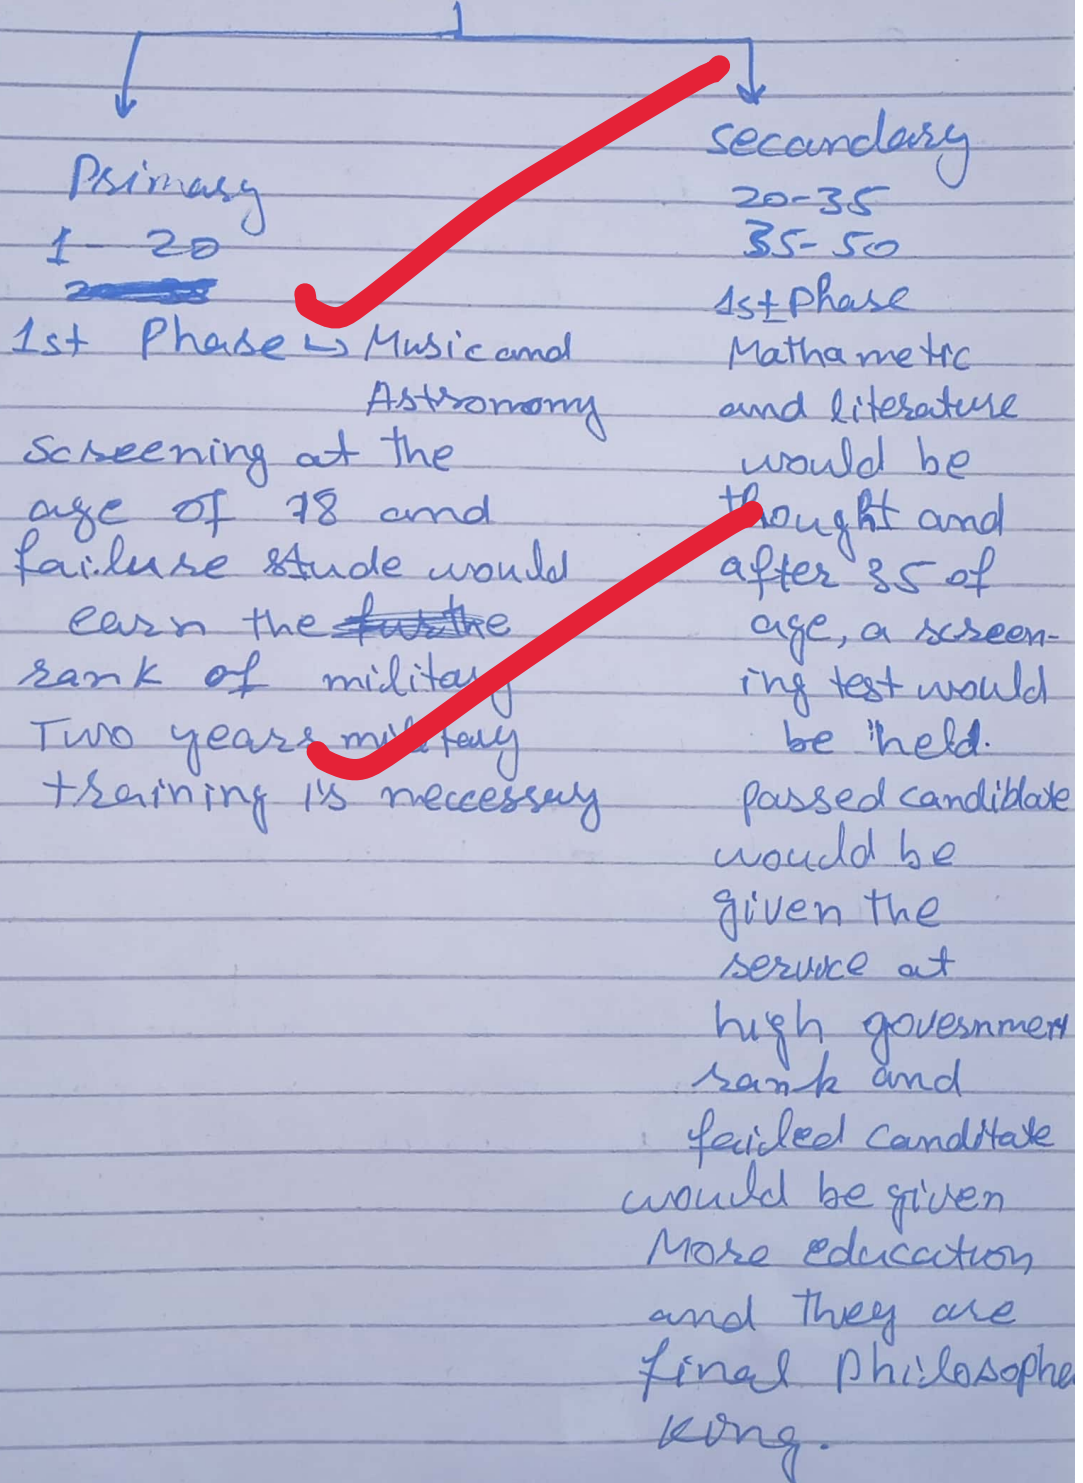 Primary
1 - 20
1st Phase ↳ Music and
Astronomy
screening at the
age of 18 and
failure stude would
earn the
rank of military
Two years military
training is neccessay
secandary
20-35
35-50
1st Phase
Mathametic
and literature
would be
thought and
after 35 of
age, a screen-
ing test would
be held.
passed candiblate
would be
given the
service at
high governmen
rank and
failed canditate
would be given
More education
and they are
final Philosophe
king.